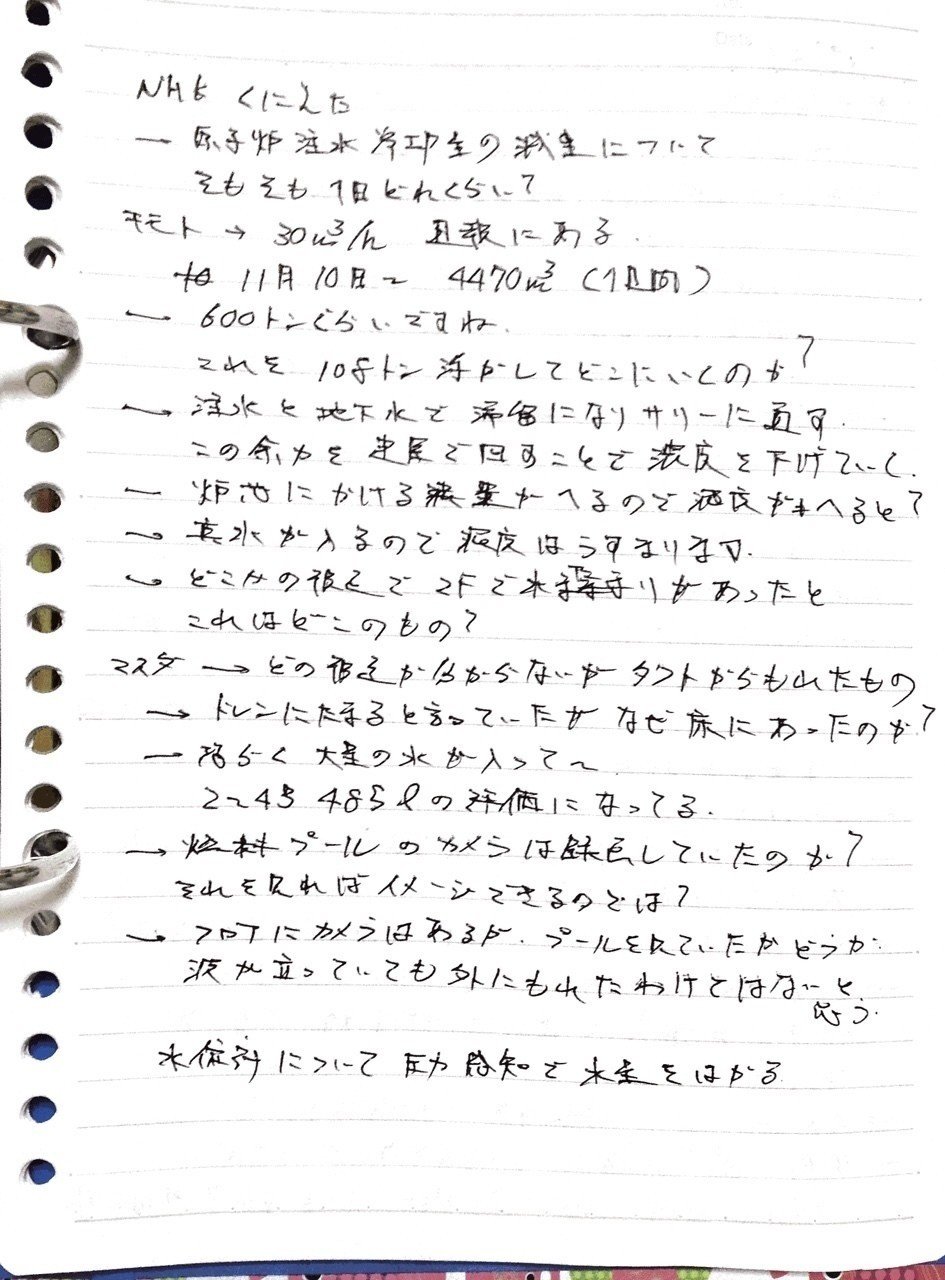 NHK くにえだ
→ 原子炉注水冷却量の減量について
そもそも1日どれくらい?
モモト → 30m³/h 日報にある.
11月10日〜 4470m³ (1週間)
→ 600トンくらいですね.
これを108トン浮かしてどこにいくのか?
→ 注水と地下水で滞留になりサリーに直す.
この余力を建屋で回すことで濃度を下げていく.
→ 炉心にかける量がへるので濃度がへると?
→ 真水が入るので濃度はうすまります.
→ どこかの報道で2Fで水たまりがあったと
これはどこのもの?
マスダ → どの報道か分からないが ダクトからもれたもの
→ ドレンにたまると言っていたがなぜ床にあったのか?
→ 恐らく大量の水が入って〜
2〜4号 485ℓの評価になってる.
→ プールのカメラは録画していたのか?
それを見ればイメージできるのでは?
→ フロアにカメラはあるが、プールを見ていたかどうか
波が立っていても外にもれたわけではないと
思う.
水位計について 圧力検知で水量をはかる